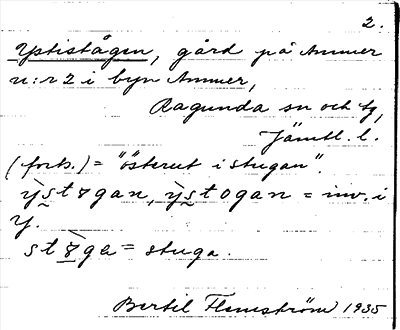 2.
Ystistågen, gård på Ammer
n:r 2 i byn Ammer,
Ragunda sn och tg,
Jämtl. l.
(forts.) = "österut i stugan".
ỳstogan, ỳstogan = inv. i
Y.
stòga = stuga.
Bertil Flemström 1935